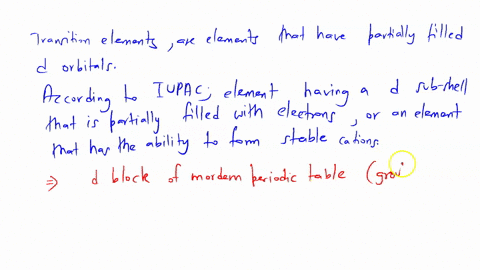 Transition elements, are elements that have partially filled
d orbitals.
According to IUPAC; element having a d sub-shell
that is partially filled with electrons, or an element
that has the ability to form stable cations.
⇒ d block of mordern periodic table (grou